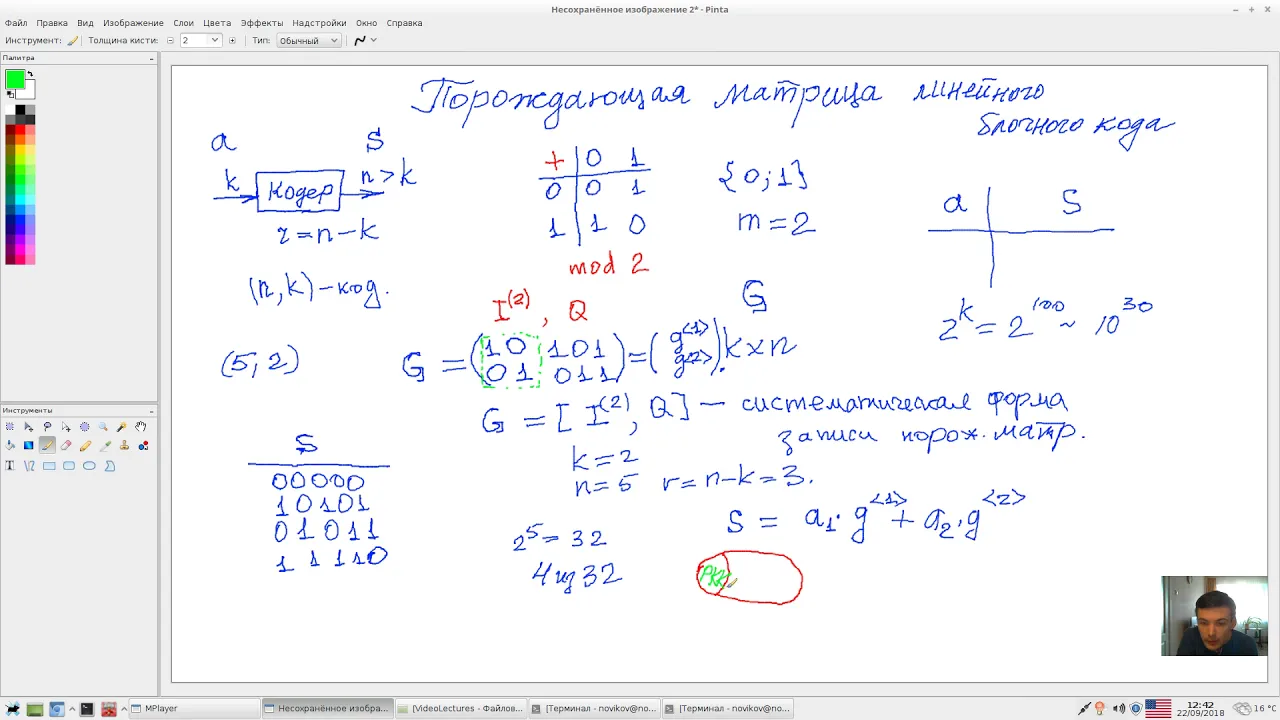 Несохранённое изображение 2* - Pinta
Файл Правка Вид Изображение Слои Цвета Эффекты Надстройки Окно Справка
Инструмент: Толщина кисти: 2 Тип: Обычный
Палитра
Порождающая матрица линейного
блочного кода
a S
k Кодер n > k
r = n - k
(n, k) - код.
(5, 2)
+ 0 1
0 0 1
1 1 0
mod 2
{0; 1}
m = 2
a S
2^k = 2^100 ~ 10^30
I^(2), Q
G
G = (1 0 1 0 1
0 1 0 1 1) = (g^<1>
g^<2>). k x n
G = [I^(2), Q] - систематическая форма
записи порож. матр.
k = 2
n = 5 r = n - k = 3.
S = a1 · g^<1> + a2 · g^<2>
Инструменты
S
00000
10101
01011
11110
2^5 = 32
4 из 32
MPlayer
Несохранённое изобра...
[VideoLectures - Файлов...
[Терминал - novikov@no...
[Терминал - novikov@no...
12:42
22/09/2018
16 °C